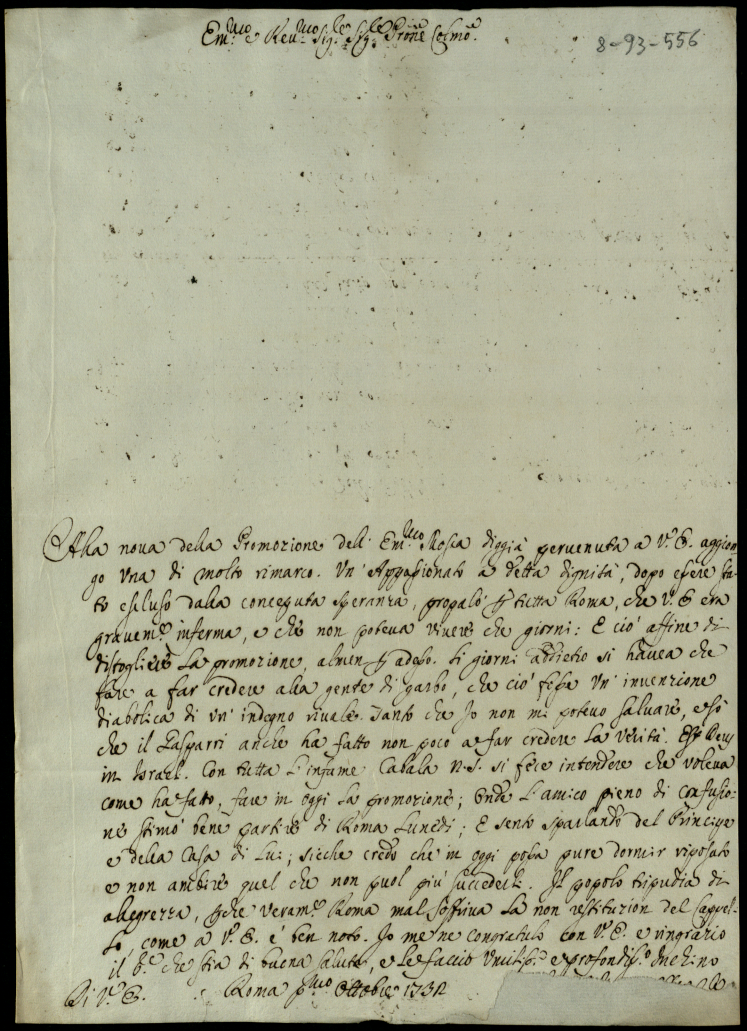 Em.mo e Rev.mo Sig.re Sig.re Prone Colmo.
8-93-556
Alla nova della Promozione dell' Em.mo Mosca diggià pervenuta a V.E. aggion-
go una di molto rimarco. Un' Appassionato a detta dignità, dopo essere sta-
to escluso dalla conceputa speranza, propalò p tutta Roma, che V.E. era
gravem.e inferma, e che non poteva vivere che giorni: E ciò affine di
distogliere la promozione, almen p adesso. Li giorni addietro si havea che
fare a far credere alla gente di garbo, che ciò fosse un' invenzione
diabolica di un' indegno rivale. Tanto che Io non mi potevo salvare, e sò
che il Gasparri anche ha fatto non poco a far credere la verità. Est Deus
in Israel. Con tutta l'infame Cabala N.S. si fece intendere che voleva
come ha fatto, fare in oggi la promozione; onde l'amico pieno di confusio-
ne stimò bene partire di Roma Lunedì; E sento sparlando del Principe
e della Casa di Lui; sicche credo che in oggi possa pure dormir riposato
e non ambire quel che non puol più succederli. Il popolo tripudia di
allegrezza, pche veram.e Roma mal soffriva la non restituzion del Cappel-
lo, come a V.E. è ben noto. Io me ne congratulo con V.E. e ringrazio
il S.e che stia di buona salute, e le faccio umilis.o e profondis.o Inchino
Di V.E. Roma p.mo Ottobre 1732